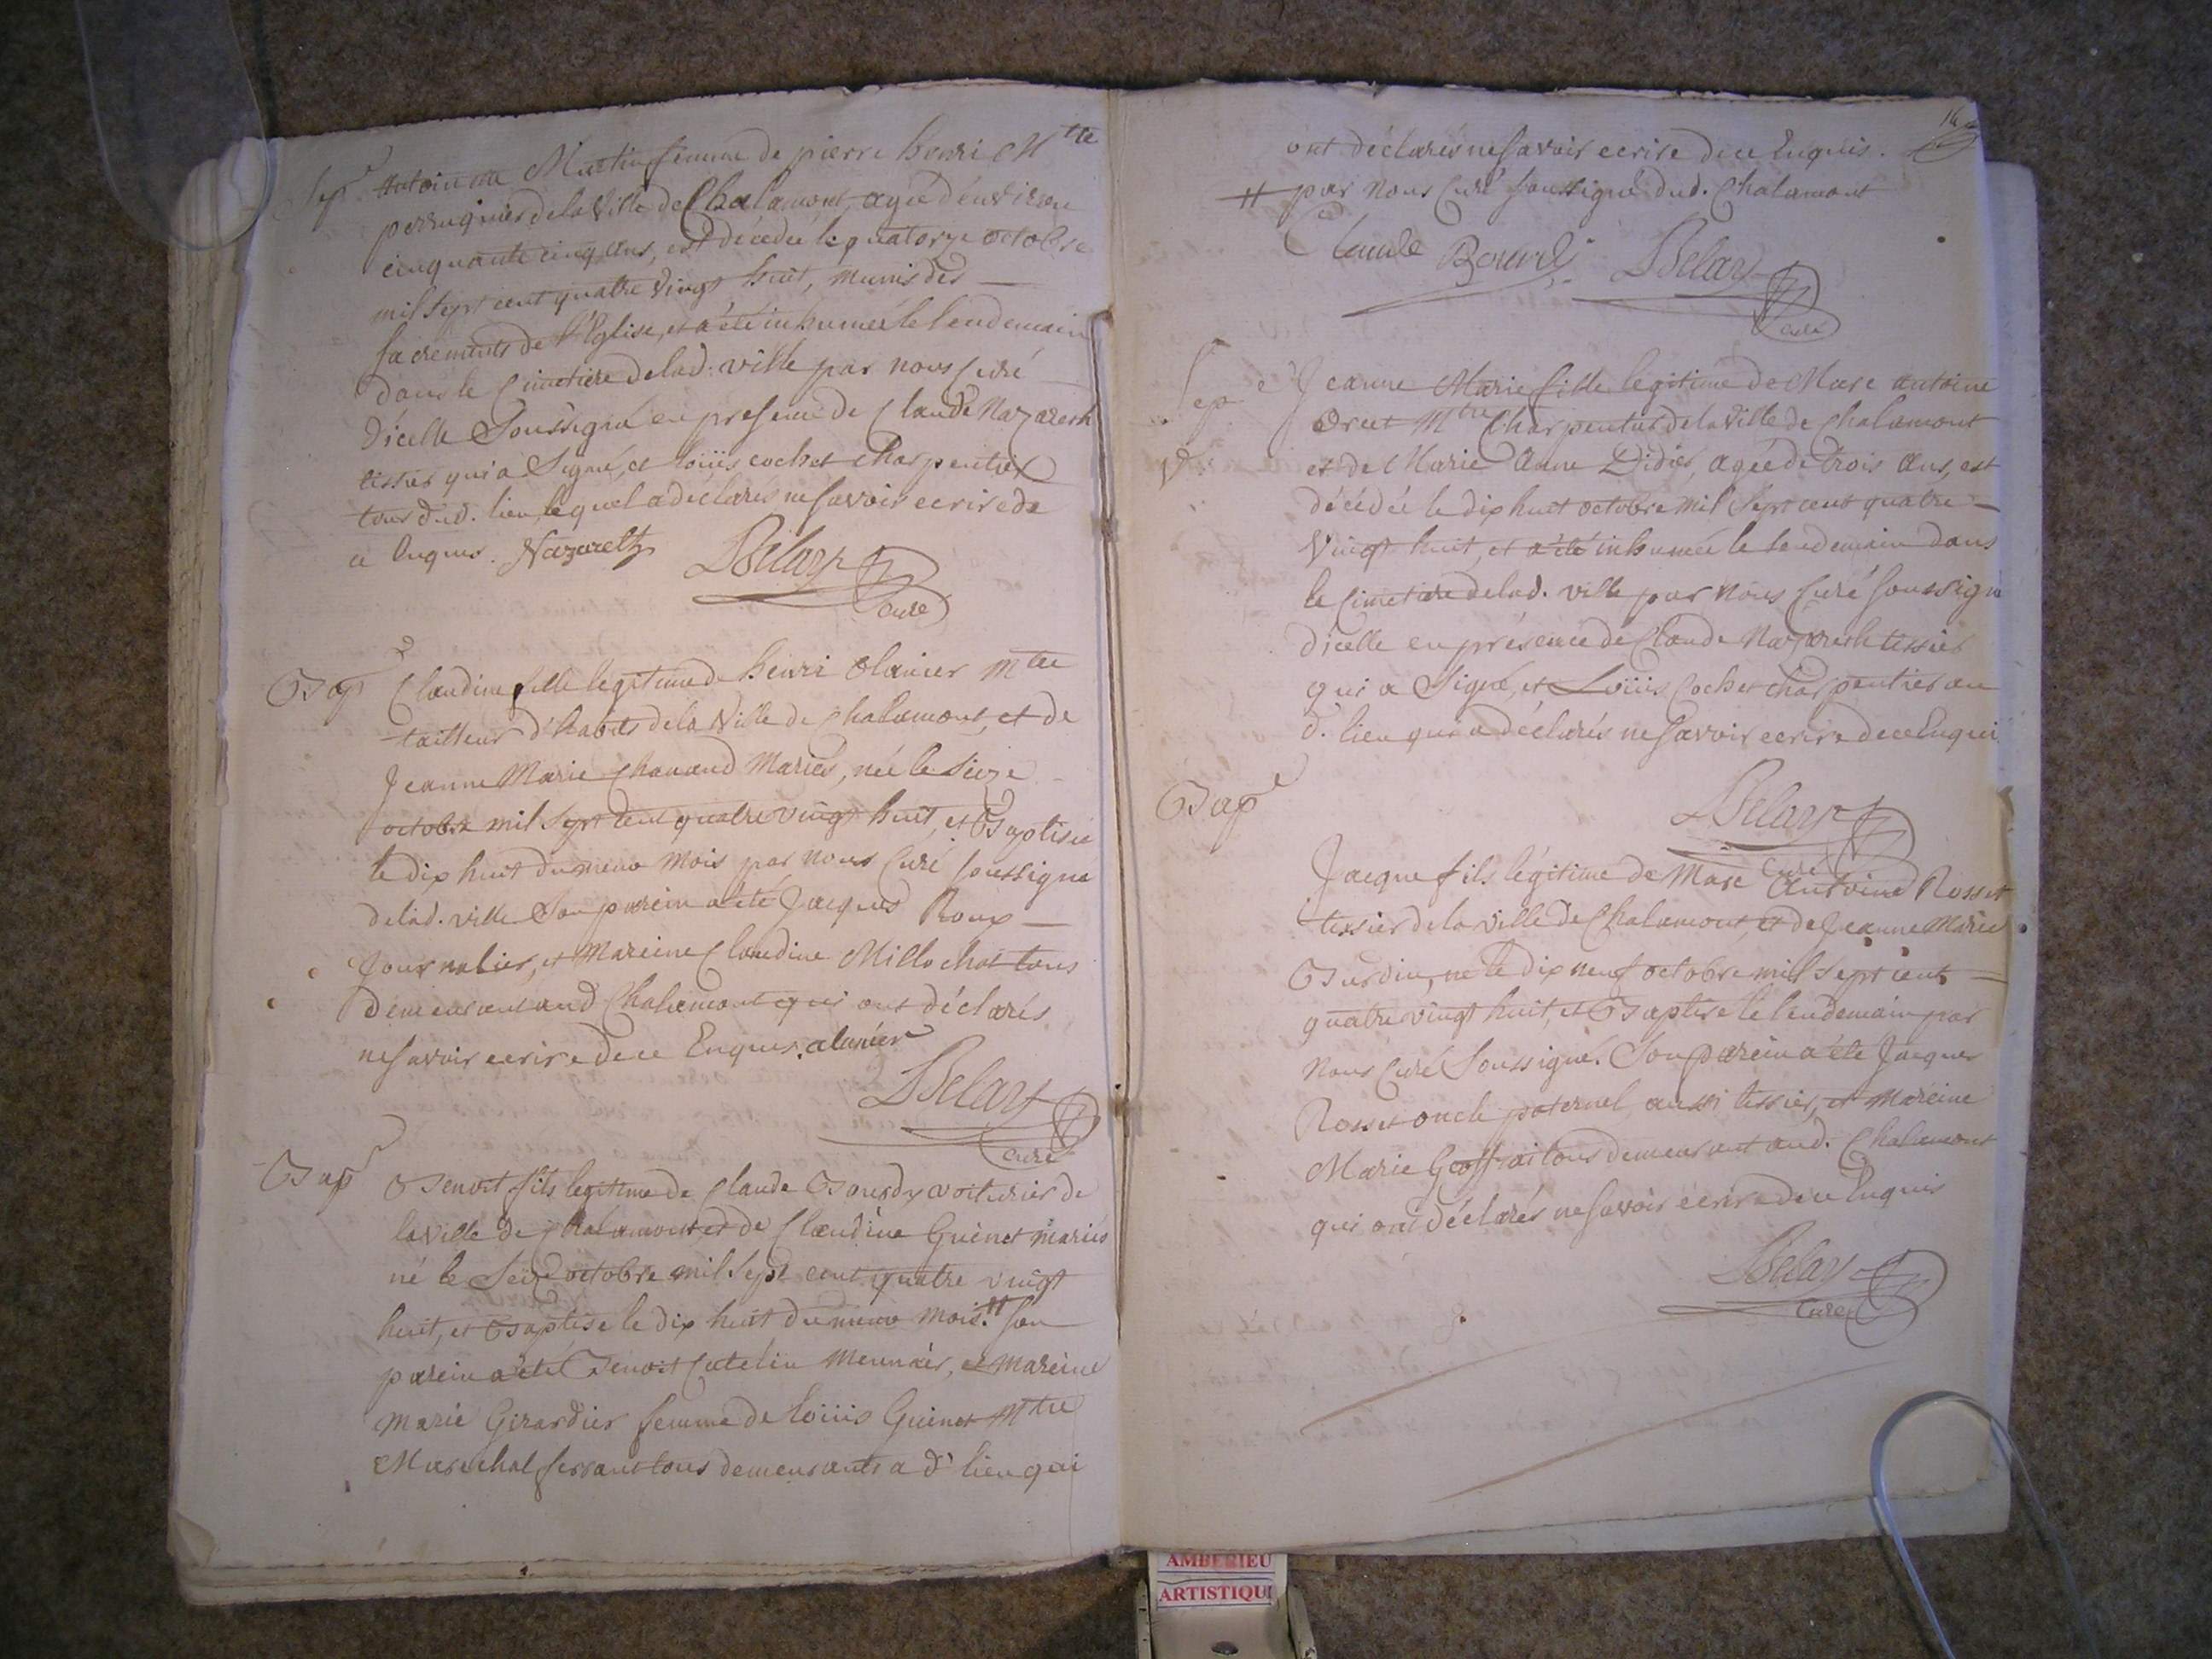 Sep.e Antoinette Martin femme de pierre henri Mtre
perruquier de la Ville de Chalamont, agée d'environ
cinquante cinq ans, est décédée le quatorze octobre
mil sept cent quatre Vingt huit, munis des
sacrements de l'Eglise, et a été inhumée le lendemain
dans le Cimetiere de lad. ville par nous Curé
d'icelle Soussigné en presence de Claude Nazareth
tissier qui a Signé, et Loüis cochet charpentier
tous dud. lieu, lequel a déclarés ne savoir ecrire de
ce Enquis. Nazareth Delary
Curé
Bape Claudine fille legitime de henri alanier Mtre
tailleur d'habits de la Ville de Chalamont, et de
Jeanne Marie Chanand Mariés, née le Seize
octobre mil Sept Cent quatre vingt huit, et Baptisée
le dix huit du meme mois par nous Curé soussigné
de lad. ville Son parein a été Jacques Roux
Journalier, et Mareine Claudine Millochat tous
demeurant aud Chalamont qui ont déclarés
ne savoir ecrire de ce Enquis. alanier
Delary
Curé
Bape Benoit fils legitime de Claude Bourdy voiturier de
la Ville de Chalamont et de Claudine Guinet mariés
né le Seize octobre mil Sept cent quatre vingt
huit, et Baptisé le dix huit du meme mois. # Son
parein a été Benoit Catelin Meunier, et mareine
Marie Girardier femme de Loüis Guinet Mtre
Marechal ferrant tous demeurants a d' lieu qui
ont déclarés ne savoir ecrire de ce Enquis.
# par nous Curé soussigné dud. Chalamont
Claude Bourdy Delary
Curé
Sep.e Jeanne Marie fille legitime de Marc antoine
Mtre Charpentier de la Ville de Chalamont
et de Marie Anne Didier, agée de trois Ans, est
décédée le dix huit octobre mil Sept cent quatre
Vingt huit, et a été inhumée le lendemain dans
le Cimetiere de lad. ville par nous Curé soussigné
d'icelle en présence de Claude Nazareth tissier
qui a Signé, et Loüis Cochet charpentier au
d. lieu qui a déclarés ne savoir ecrire de ce Enquis
Delary
Curé
Bape
Jacque fils légitime de Marc Antoine Rosset
tissier de la ville de Chalamont, et de Jeanne Marie
Burdin, né le dix neuf octobre mil Sept cent
quatre vingt huit, et Baptisé le lendemain par
nous Curé Soussigné. Son parein a été Jacques
Rosset oncle paternel aussi tissier, et mareine
Marie Geoffrai tous demeurant aud. Chalamont
qui ont déclarés ne savoir écrire de ce Enquis
Delary
Curé
AMBERIEU
ARTISTIQU